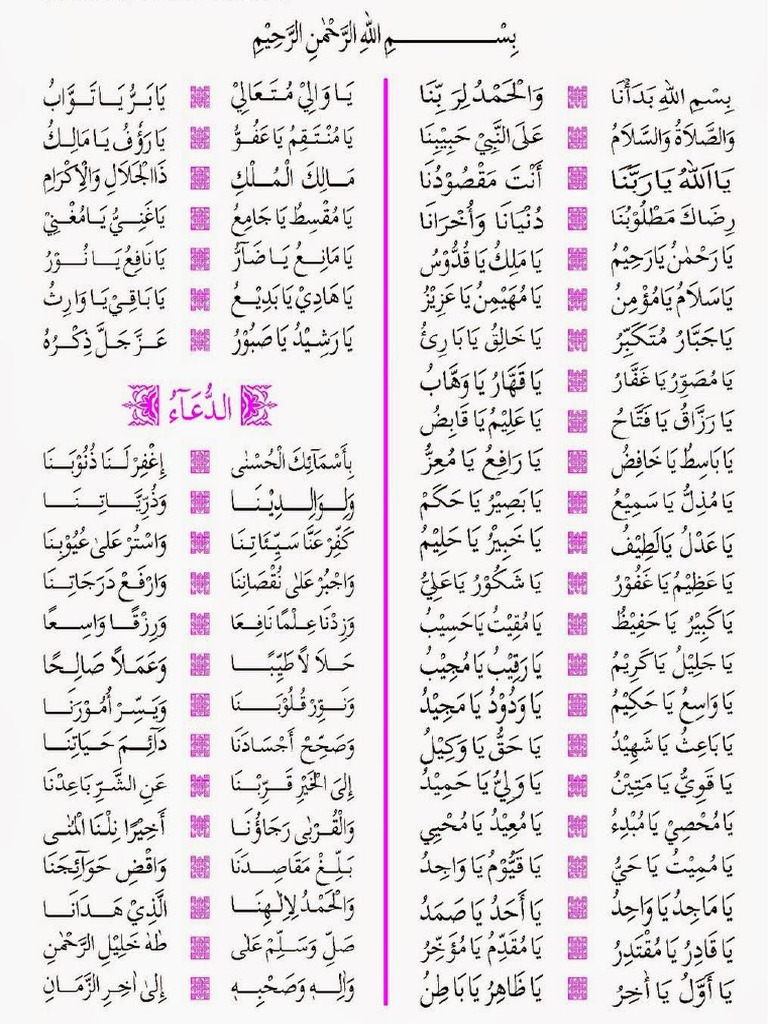 بِسْـــمِ اللهِ الرَّحْمٰنِ الرَّحِيْمِ
بِسْمِ اللهِ بَدَأْنَا وَالْحَمْدُ لِرَبِّنَا
وَالصَّلَاةُ وَالسَّلَامُ عَلَى النَّبِيْ حَبِيْبِنَا
يَا اَللهُ يَا رَبَّنَا أَنْتَ مَقْصُوْدُنَا
رِضَاكَ مَطْلُوْبُنَا دُنْيَانَا وَأُخْرَانَا
يَا رَحْمٰنُ يَا رَحِيْمُ يَا مَلِكُ يَا قُدُّوْسُ
يَا سَلَامُ يَا مُؤْمِنُ يَا مُهَيْمِنُ يَا عَزِيْزُ
يَا جَبَّارُ مُتَكَبِّرُ يَا خَالِقُ يَا بَارِئُ
يَا مُصَوِّرُ يَا غَفَّارُ يَا قَهَّارُ يَا وَهَّابُ
يَا رَزَّاقُ يَا فَتَّاحُ يَا عَلِيْمُ يَا قَابِضُ
يَا بَاسِطُ يَا خَافِضُ يَا رَافِعُ يَا مُعِزُّ
يَا مُذِلُّ يَا سَمِيْعُ يَا بَصِيْرُ يَا حَكَمْ
يَا عَدْلُ يَا لَطِيْفُ يَا خَبِيْرُ يَا حَلِيْمُ
يَا عَظِيْمُ يَا غَفُوْرُ يَا شَكُوْرُ يَا عَلِيُّ
يَا كَبِيْرُ يَا حَفِيْظُ يَا مُقِيْتُ يَا حَسِيْبُ
يَا جَلِيْلُ يَا كَرِيْمُ يَا رَقِيْبُ يَا مُجِيْبُ
يَا وَاسِعُ يَا حَكِيْمُ يَا وَدُوْدُ يَا مَجِيْدُ
يَا بَاعِثُ يَا شَهِيْدُ يَا حَقُّ يَا وَكِيْلُ
يَا قَوِيُّ يَا مَتِيْنُ يَا وَلِيُّ يَا حَمِيْدُ
يَا مُحْصِيْ يَا مُبْدِءُ يَا مُعِيْدُ يَا مُحْيِي
يَا مُمِيْتُ يَا حَيُّ يَا قَيُّوْمُ يَا وَاجِدُ
يَا مَاجِدُ يَا وَاحِدُ يَا أَحَدُ يَا صَمَدُ
يَا قَادِرُ يَا مُقْتَدِرُ يَا مُقَدِّمُ يَا مُؤَخِّرُ
يَا أَوَّلُ يَا أٰخِرُ يَا ظَاهِرُ يَا بَاطِنُ
يَا وَالِيْ مُتَعَالِيْ يَا بَرُّ يَا تَوَّابُ
يَا مُنْتَقِمُ يَا عَفُوُّ يَا رَؤُفُ يَا مَالِكُ
مَالِكَ الْمُلْكِ ذَا الْجَلَالِ وَالْاِكْرَامِ
يَا مُقْسِطُ يَا جَامِعُ يَا غَنِيُّ يَا مُغْنِيْ
يَا مَانِعُ يَا ضَآرُّ يَا نَافِعُ يَا نُوْرُ
يَا هَادِيْ يَا بَدِيْعُ يَا بَاقِيْ يَا وَارِثُ
يَا رَشِيْدُ يَا صَبُوْرُ عَزَّ جَلَّ ذِكْرُهُ
الدُّعَآءُ
بِأَسْمَآئِكَ الْحُسْنٰى إِغْفِرْ لَنَا ذُنُوْبَنَا
وَلِوَالِدِيْنَا وَذُرِّيَّاتِنَا
كَفِّرْ عَنَّا سَيِّئَاتِنَا وَاسْتُرْ عَلٰى عُيُوْبِنَا
وَاجْبُرْ عَلٰى نُقْصَانِنَا وَارْفَعْ دَرَجَاتِنَا
وَزِدْنَا عِلْمًا نَافِعَا وَرِزْقًا وَاسِعًا
حَلَالًا طَيِّبًا وَعَمَلًا صَالِحًا
وَنَوِّرْ قُلُوْبَنَا وَيَسِّرْ أُمُوْرَنَا
وَصَحِّحْ أَجْسَادَنَا دَآئِمَ حَيَاتِنَا
إِلَى الْخَيْرِ قَرِّبْنَا عَنِ الشَّرِّ بَاعِدْنَا
وَالْقُرْبٰى رَجَاؤُنَا أَخِيْرًا نِلْنَا الْمُنٰى
بَلِّغْ مَقَاصِدَنَا وَاقْضِ حَوَآئِجَنَا
وَالْحَمْدُ لِاِلٰهِنَا الَّذِيْ هَدَانَا
صَلِّ وَسَلِّمْ عَلٰى طٰهٰ خَلِيْلِ الرَّحْمٰنِ
وَاٰلِهٖ وَصَحْبِهٖ إِلٰى اٰخِرِ الزَّمَانِ